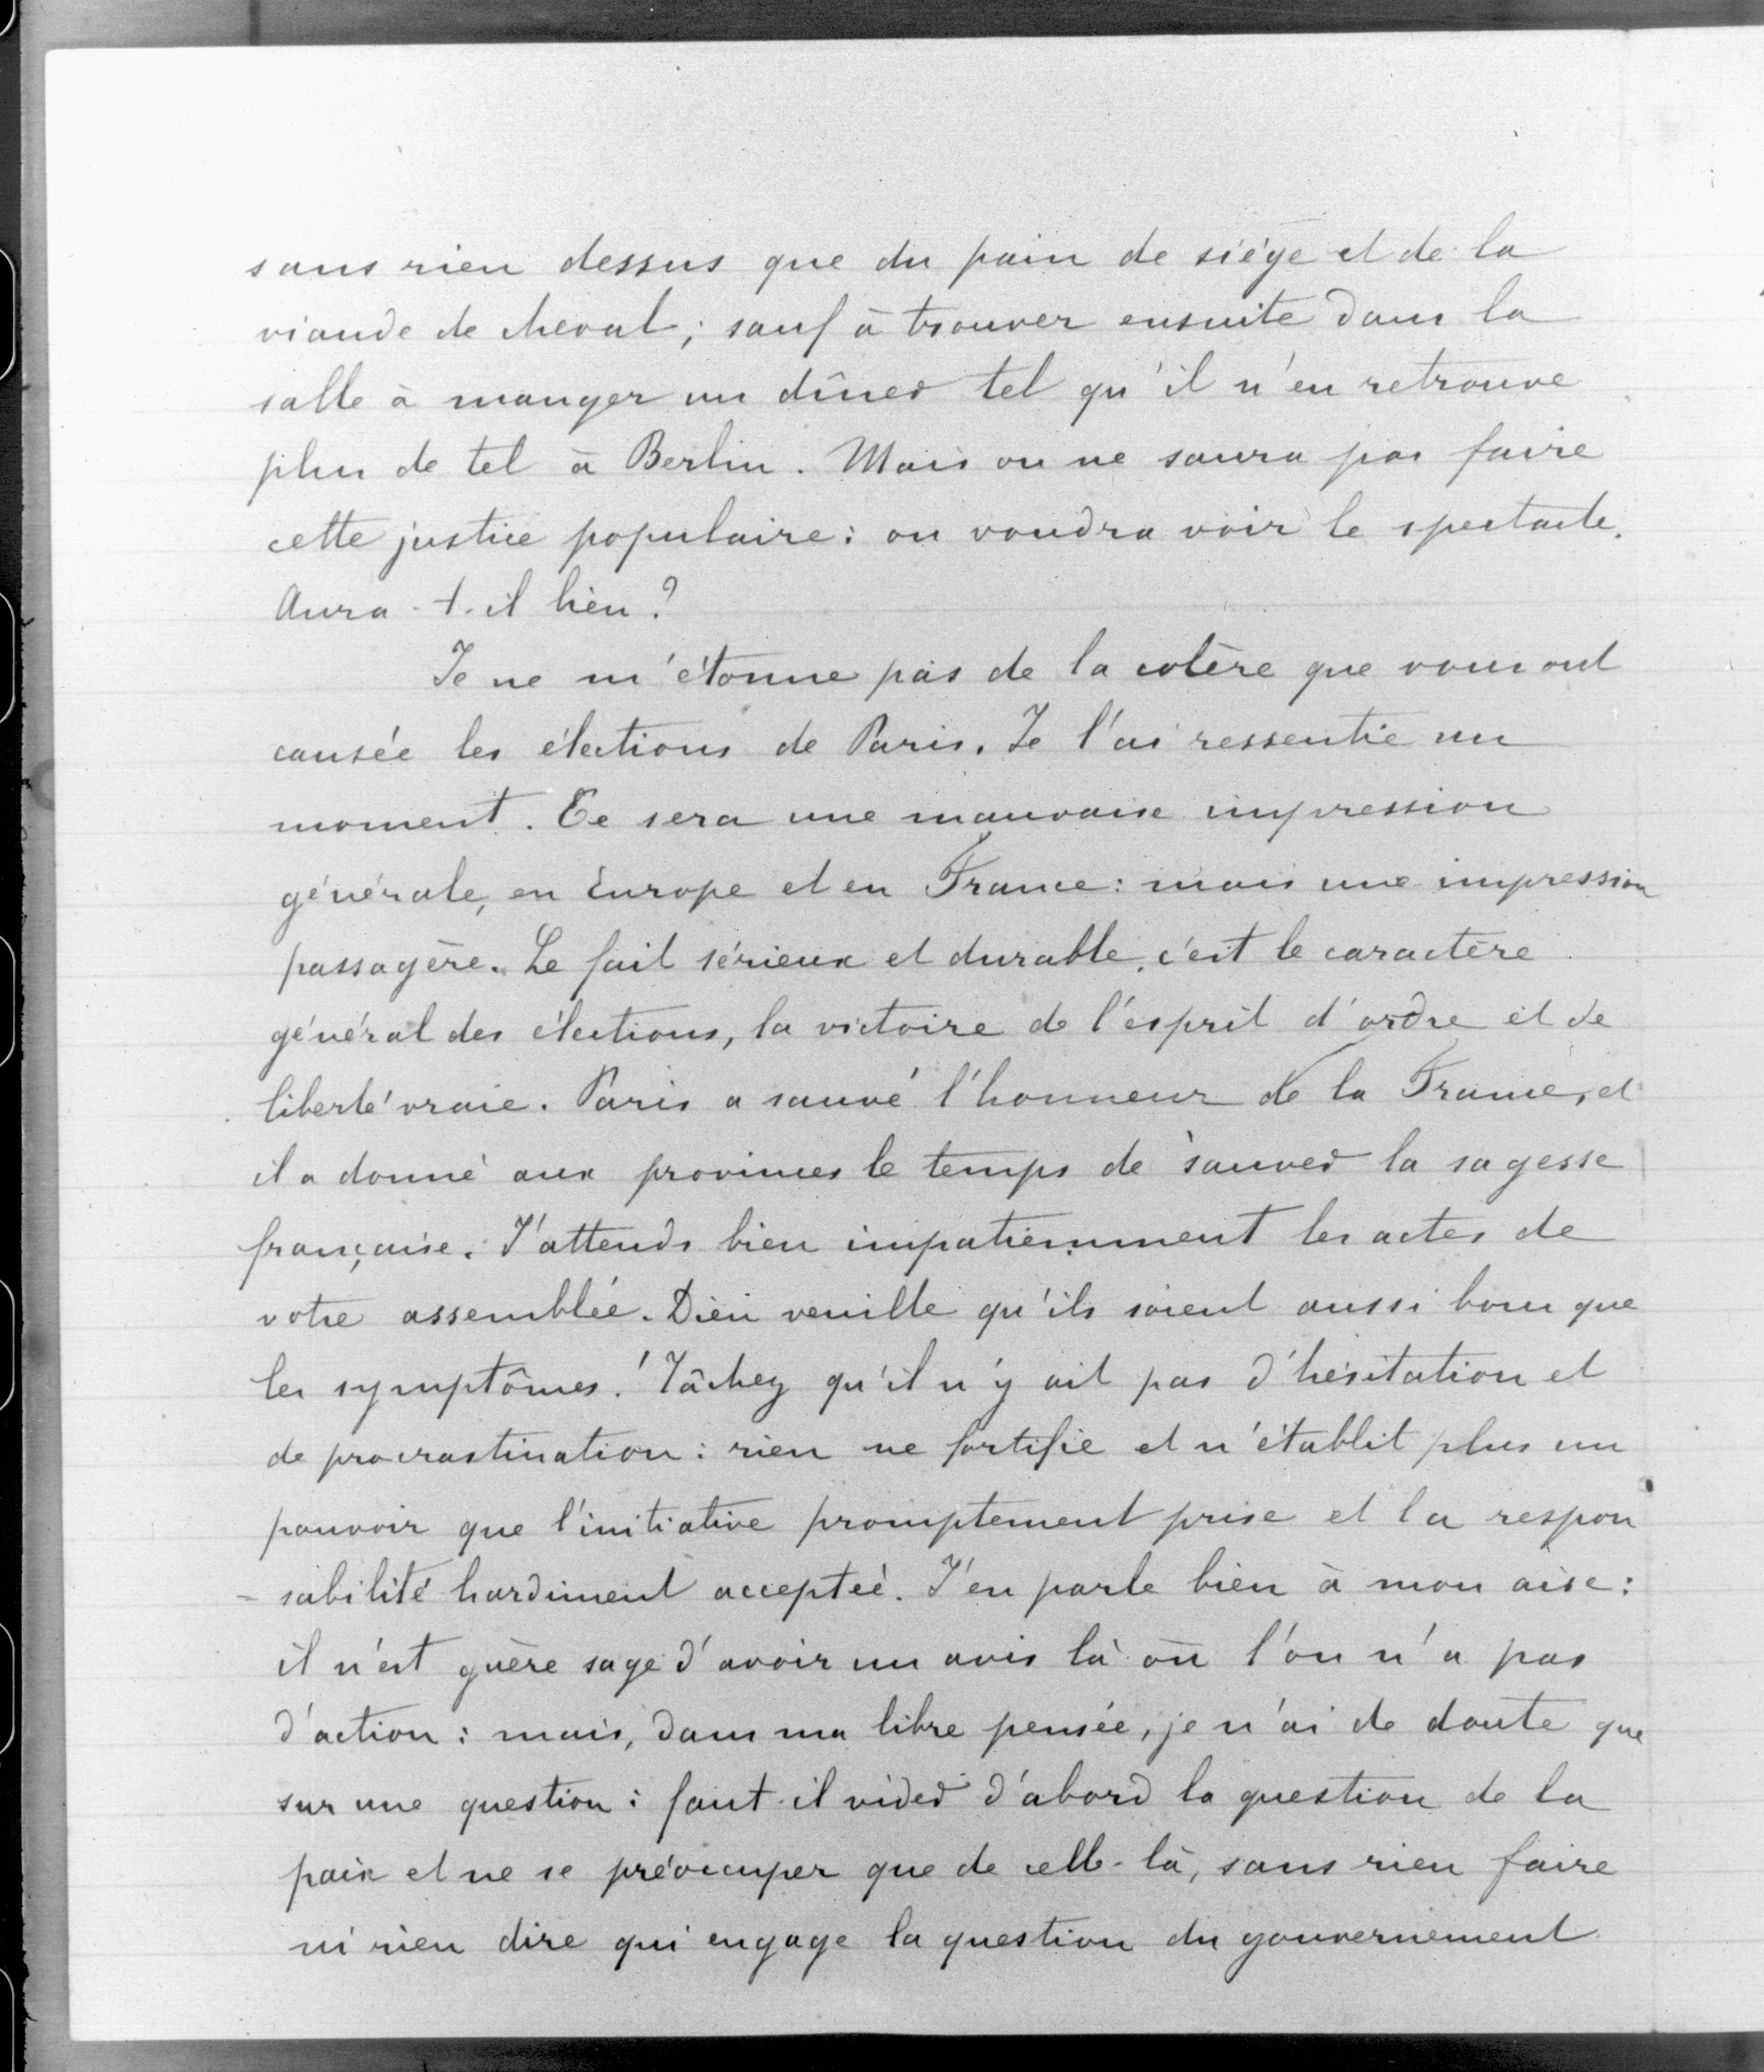 sans rien dessus que du pain de siége et de la
viande de cheval ; sauf à trouver ensuite dans la
salle à manger un dîner tel qu'il n'en retrouve
plus de tel à Berlin. Mais on ne saura pas faire
cette justice populaire : on voudra voir le spectacle.
Aura-t-il lieu ?
Je ne m'étonne pas de la colère que vous ont
causée les élections de Paris. Je l'ai ressentie un
moment. Ce sera une mauvaise impression
générale, en Europe et en France : mais une impression
passagère. Le fait sérieux et durable, c'est le caractère
général des élections, la victoire de l'esprit d'ordre et de
liberté vraie. Paris a sauvé l'honneur de la France, et
il a donné aux provinces le temps de sauver la sagesse
française. J'attends bien impatiemment les actes de
votre assemblée. Dieu veuille qu'ils soient aussi bons que
les symptômes ! Tâchez qu'il n'y ait pas d'hésitation et
de procrastination : rien ne fortifie et n'établit plus un
pouvoir que l'initiative promptement prise et la respon
- sabilité hardiment acceptée. J'en parle bien à mon aise :
il n'est guère sage d'avoir un avis là où l'on n'a pas
d'action : mais, dans ma libre pensée, je n'ai de doute que
sur une question : faut-il vider d'abord la question de la
paix et ne se préoccuper que de celle-là, sans rien faire
ni rien dire qui engage la question du gouvernement